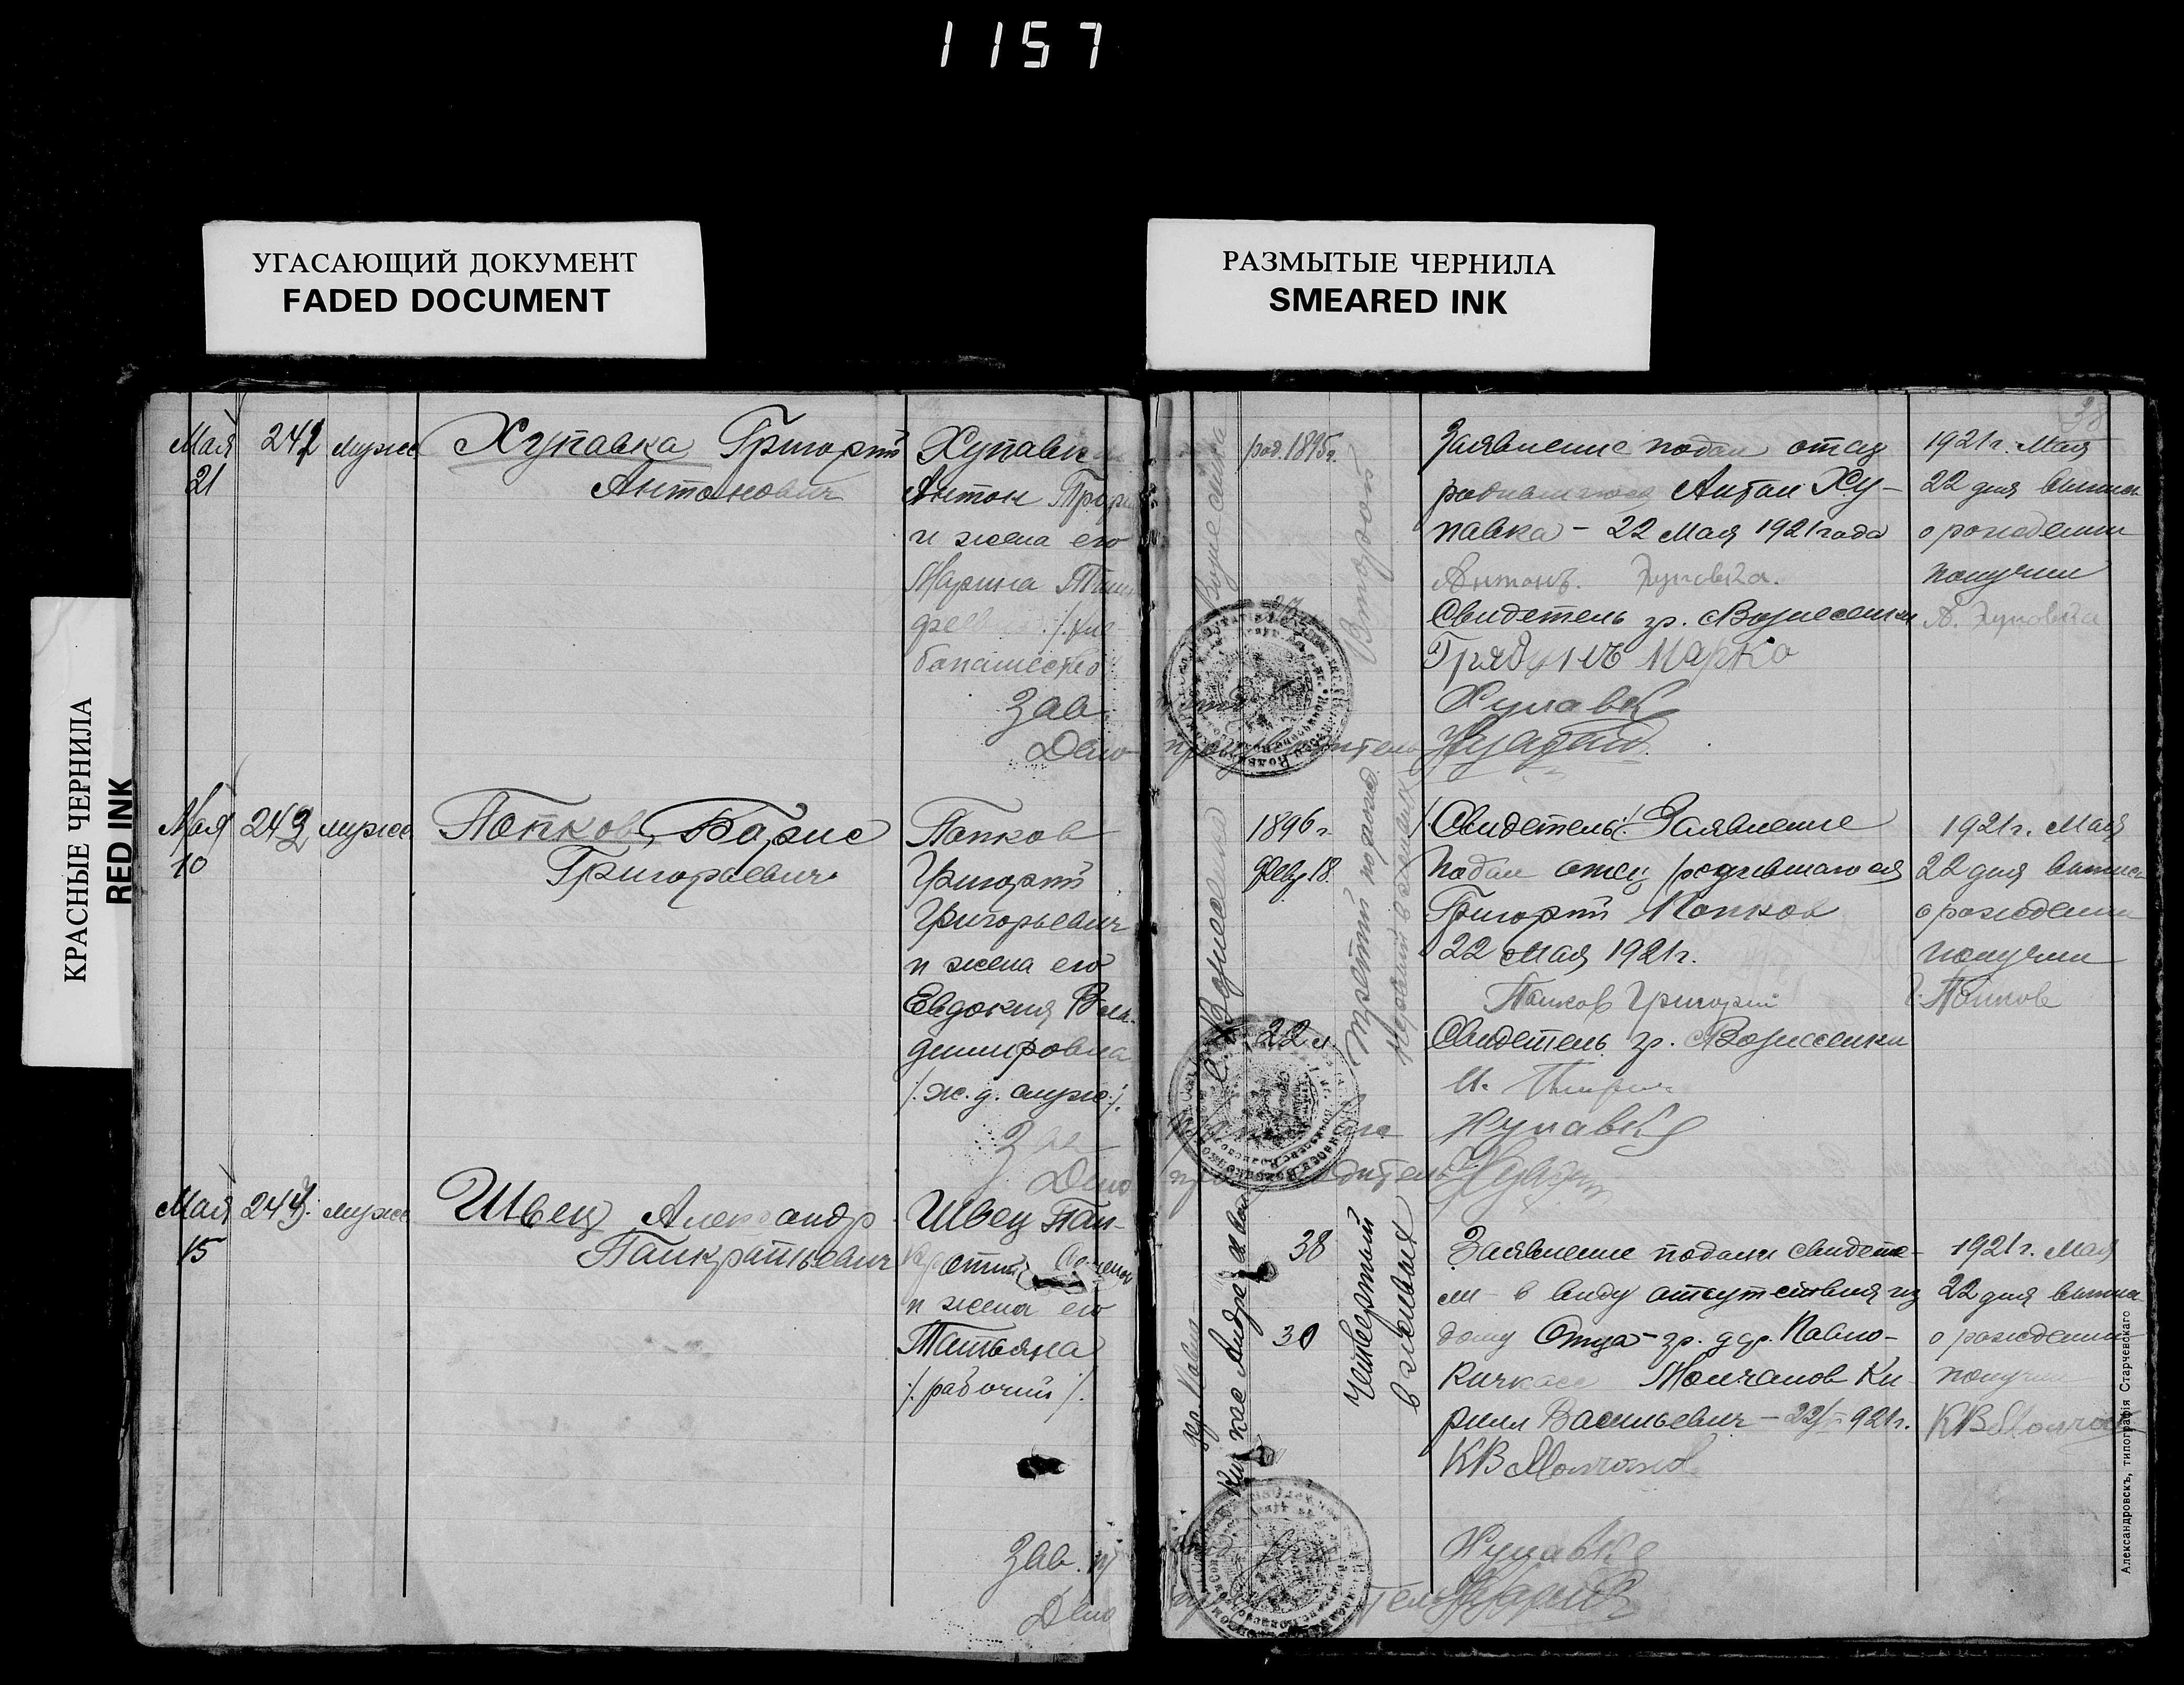 1157
УГАСАЮЩИЙ ДОКУМЕНТ
FADED DOCUMENT
РАЗМЫТЫЕ ЧЕРНИЛА
SMEARED INK
КРАСНЫЕ ЧЕРНИЛА
RED INK
Мая
21
242
мужс
Хупавка Григорий
Антонович
Хупавка
Антон
и жена его
Марина
Зав.
Дело
Вознесенка
род. 1895г.
Второй
Заявление подал отец
родившагося Антон Ху-
павка - 22 Мая 1921 года
Антонъ. Хуповка.
Свидетель гр. с Вознесенки
Марко
Хупавка
производитель
1921 г. Мая
22 дня выпись
о рождении
получил
А. Хуповка
38
Мая
10
243
мужс.
Попков, Борис
Григорьевич
Попков
Григорий
Григорьевич
и жена его
Евдокия Вла-
димировна
/. ж. д. служ ./.
Дело
с. Вознесенка
1896 г
Февр. 18.
22 л.
Третий
/Свидетель/. Заявление
подал отец родившагося
Григорий Попков
22 Мая 1921 г.
Попков Григорий
Свидетель гр. с Вознесенки
Хупавка
1921 г. Мая
22 дня выпись
о рождении
получил
Г. Попков
Мая
15
244.
мужс
Швец Александр
Панкратьевич
Швец Пан-
и жена его
Татьяна
/. рабочий /.
Зав.
Дело
38
30
Четвертый
в живых
Заявление подали свидете-
ли - в виду отсутствия из
дому Отца - гр. дер. Павло-
Кичкасс Молчанов Ки-
рилл Васильевич - 22/V 921 г.
КВ Молчанов
Хупавка
1921 г. Мая
22 дня выпись
о рождении
получил
КВ Молчанов
Александровскъ, типографія Старчевскаго